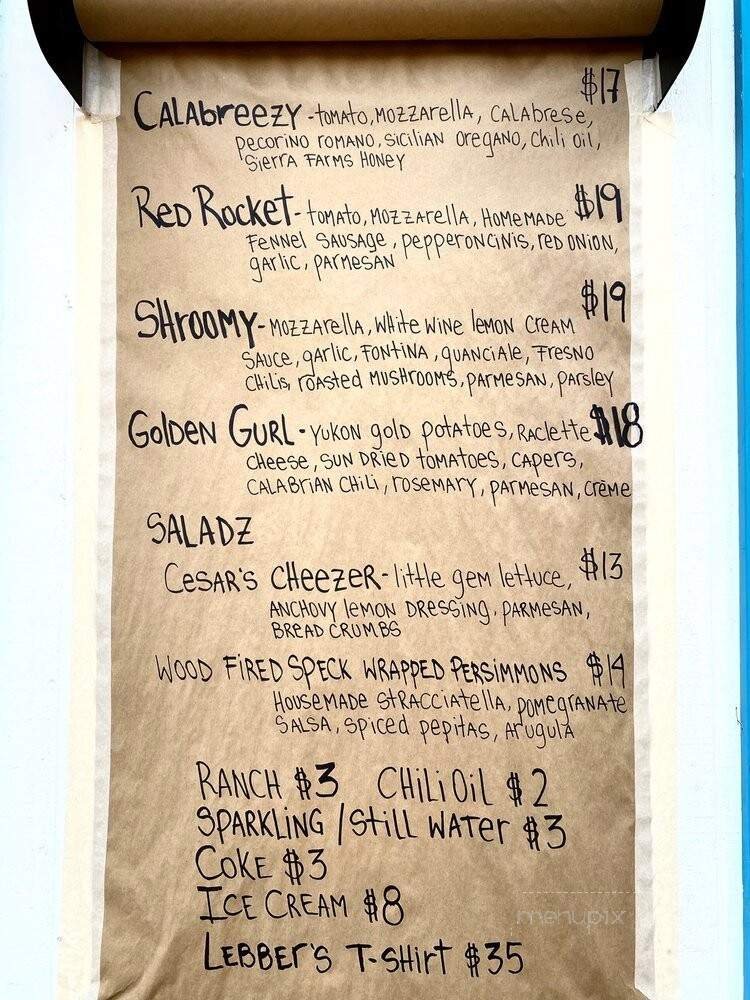 $17
CALAbreezy - tomato, Mozzarella, CALAbrese,
pecorino romano, sicilian oregano, chili oil,
Sierra Farms Honey
Red Rocket - tomato, Mozzarella, Homemade $19
Fennel Sausage, pepperoncinis, red onion,
garlic, parmesan
$19
SHroomy - Mozzarella, White Wine lemon Cream
Sauce, garlic, Fontina, guanciale, Fresno
Chilis, roasted Mushrooms, parmesan, parsley
Golden Gurl - Yukon gold potatoes, Raclette $18
Cheese, Sun Dried tomatoes, Capers,
CALABRIAN Chili, rosemary, parmesan, crème
SALADZ
Cesar's Cheezer - little gem lettuce, $13
ANCHOVY lemon DRESSING, PARMESAN,
BREAD CRUMBS
WOOD FIRED SPECK WRAPPED PERSIMMONS $14
Housemade Stracciatella, pomegranate
Salsa, spiced pepitas, arugula
RANCH $3 CHili Oil $2
SPARKLING / Still Water $3
COKE $3
ICE CREAM $8
LEBBER'S T-SHirt $35
menupix